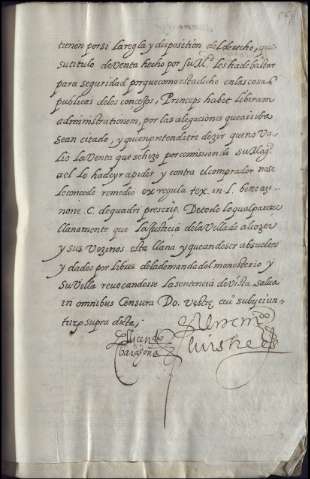 tienen por si la regla y disposition del derecho, que
su titulo de venta hecho por su Mag. les ha de bastar
para seguridad porque como esta dicho en las cosas
publicas de los concejos, Princeps habet liberam
administrationem, por las alegaciones que arriba
sean citado, y quien pretendiere dezir que no va
lio la venta que se hizo por comision de su Mag.
a el lo ha de yr a pidir y contra el comprador no se
le concede remedio ex regula tex. in l. bene a ze
none C. de quadri prescrip. De todo lo qual parece
llanamente que la justicia de la Villa de alcozer
y sus vozinos esta llana y que an de scr absueltos
y dados por libres de la demanda del monesterio y
su Villa revocandose la sentencia de vista salua
in omnibus Censura Do. vestre cui subijciun
tur supra dicta,